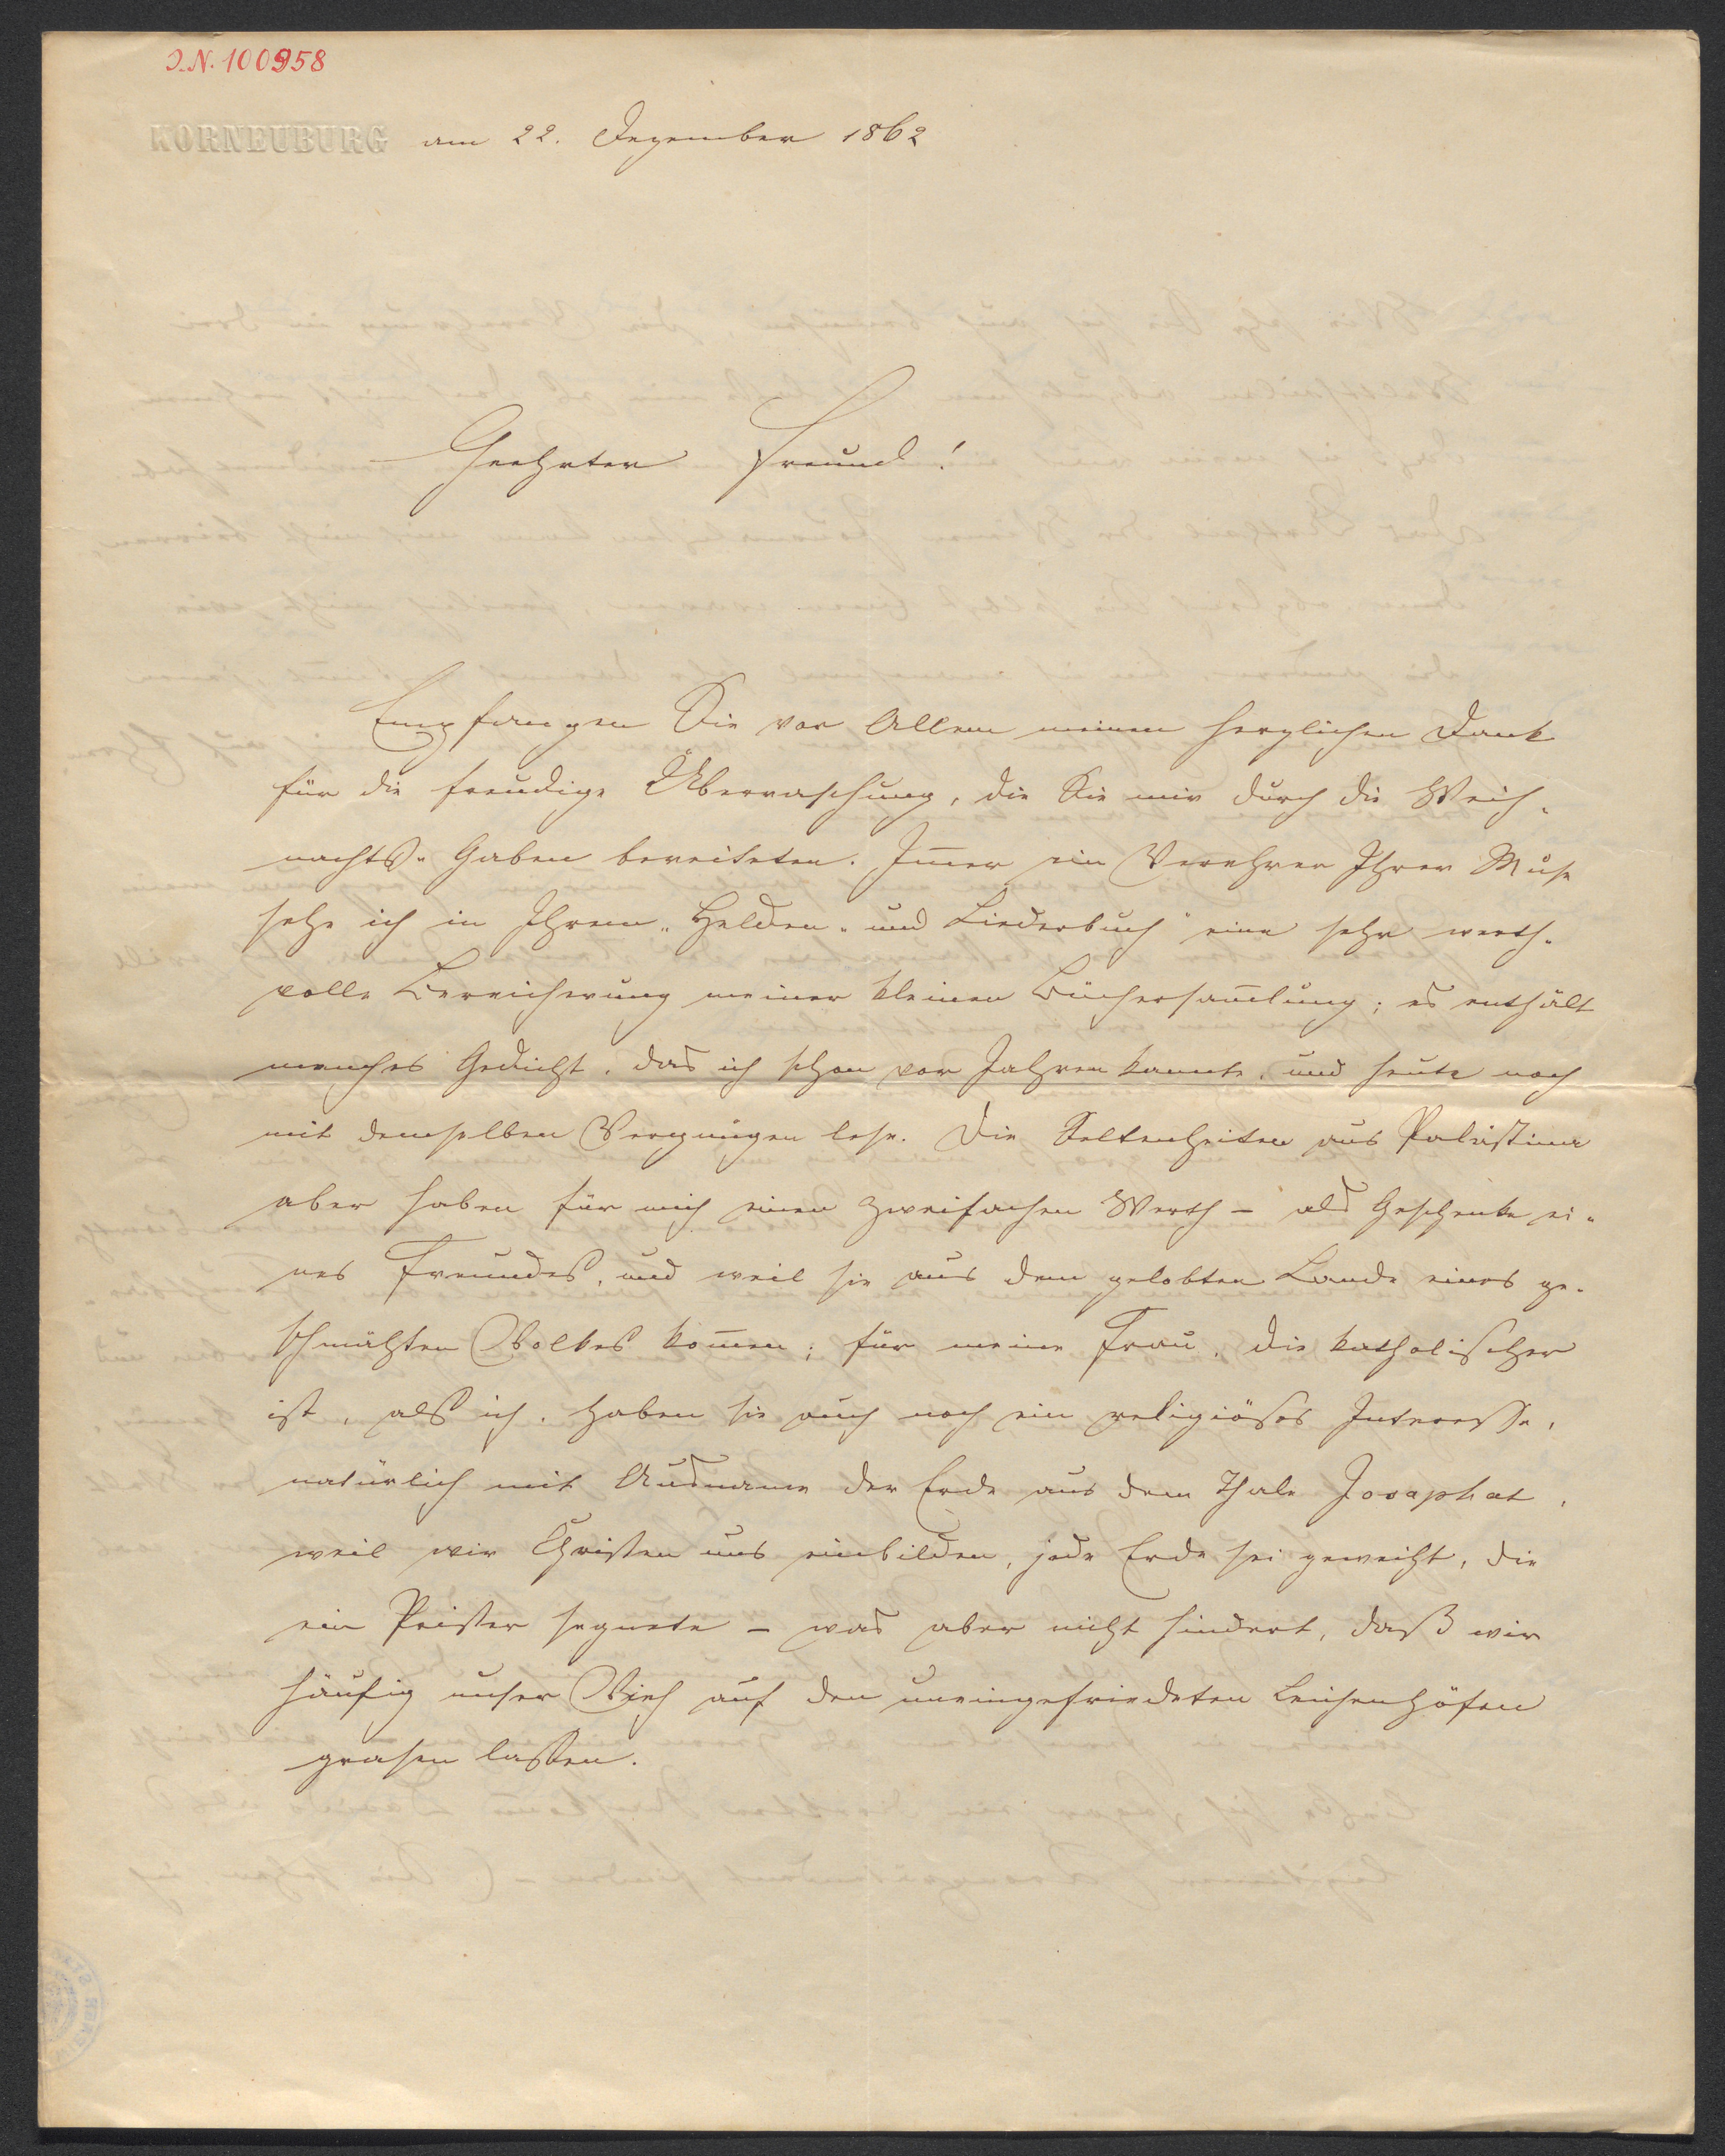 I.N. 100958
KORNEUBURG am 22. Dezember 1862
Geehrter Freund!
Empfangen Sie vor Allem meinen herzlichen Dank
für die freudige Überraschung, die Sie mir durch die Weih-
nachts-Gaben bereiteten. Im̅er ein Verehrer Ihrer Muse
sehe ich in Ihrem „Helden- und Liederbuch" eine sehr werth-
volle Bereicherung meiner kleinen Büchersam̅lung; es enthält
manches Gedicht, das ich schon vor Jahren kannte, und heute noch
mit demselben Vergnügen lese. Die Seltenheiten aus Palästina
aber haben für mich einen zweifachen Werth – als Geschenke ei-
nes Freundes, und weil sie aus dem gelobten Lande eines ge-
schmähten Volkes kom̅en; für meine Frau, die katholischer
ist, als ich, haben sie auch noch ein religiöses Interesse,
natürlich mit Ausname der Erde aus dem Thale Josaphat,
weil wir Christen uns einbilden, jede Erde sei geweiht, die
ein Priester segnete – was aber nicht hindert, daß wir
häufig unser Vieh auf den uneingefriedeten Leichenhöfen
grasen lassen.